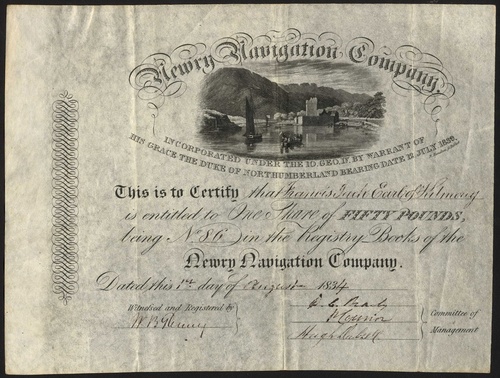 Newry Navigation Company.
INCORPORATED UNDER THE 10. GEO. IV. BY WARRANT OF
HIS GRACE THE DUKE OF NORTHUMBERLAND BEARING DATE JULY 1829.
This is to Certify that Francis Jack Earl of Kilmorey
is entitled to One Share of FIFTY POUNDS,
being No. 86 in the Registry Books of the
Newry Navigation Company.
Dated this 1st day of August 1834
Witnessed and Registered by
Committee of
Management